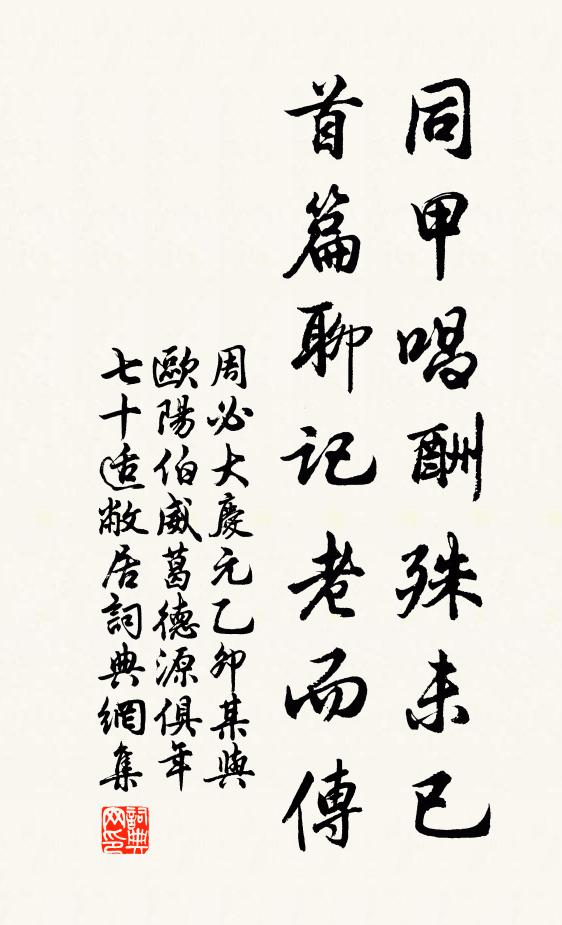 同甲唱酬殊未已
首篇聊記老而傳
周必大慶元乙卯某與
歐陽伯威葛德源俱年
七十适敝居詞典網集
詞典网印